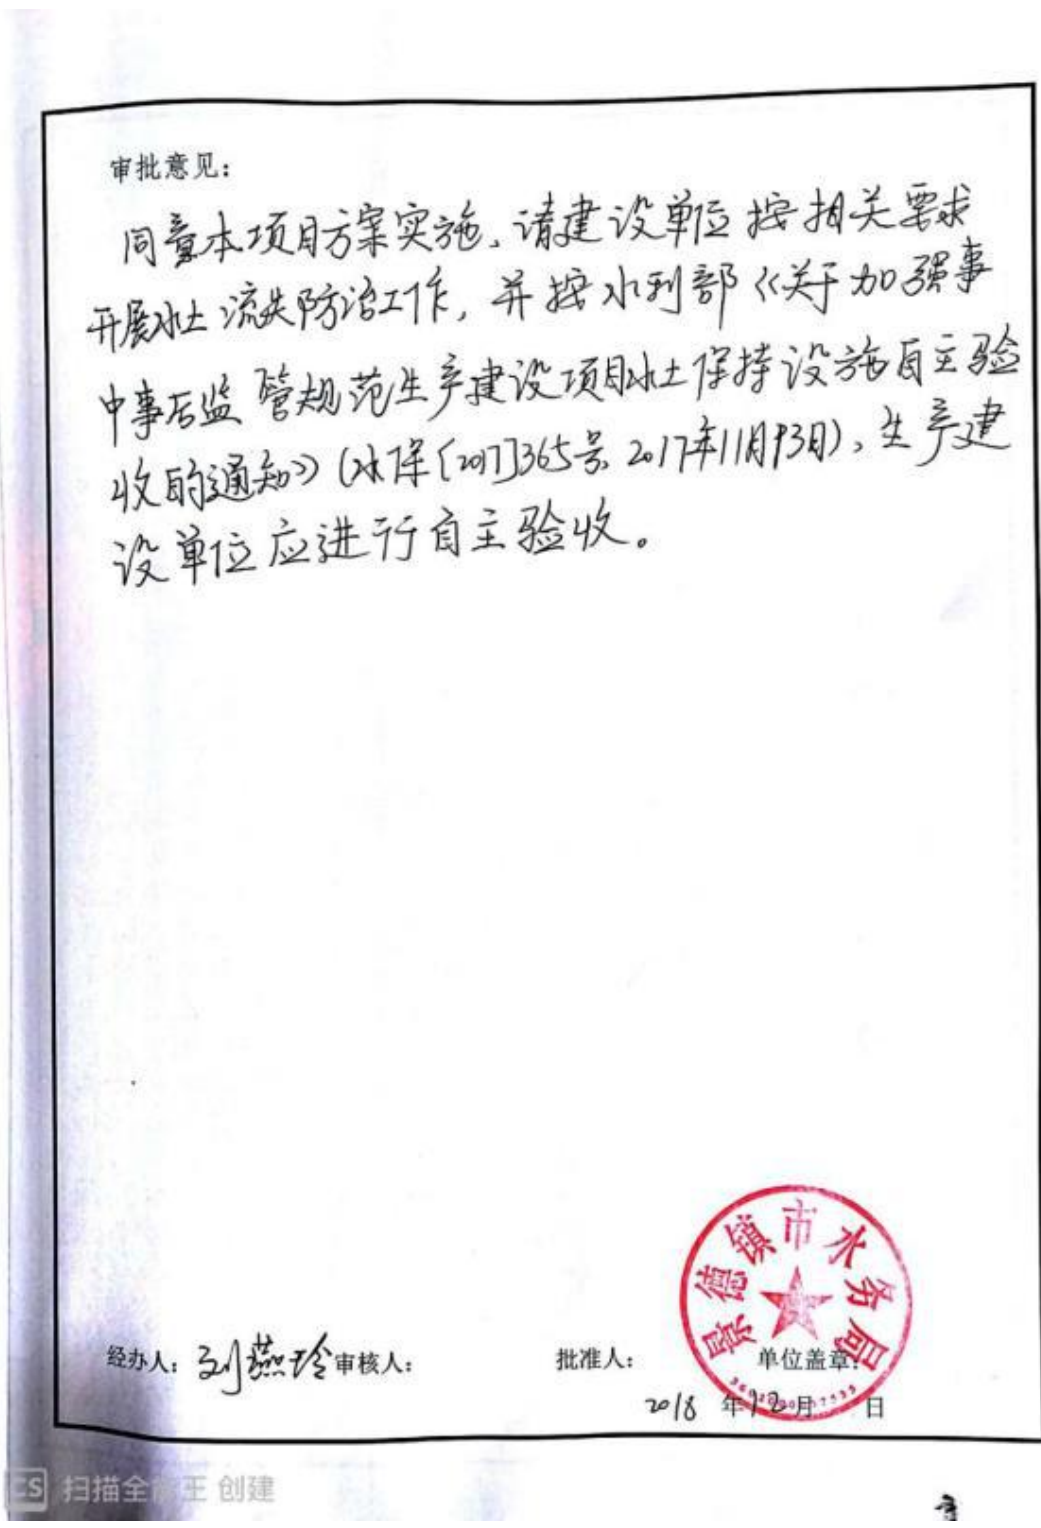 审批意见：
同意本项目方案实施、请建设单位按相关要求
开展水土流失防治工作，并按水利部《关于加强事
中事后监管规范生产建设项目水土保持设施自主验
收的通知》(水保〔2017〕365号、2017年11月13日)、生产建
设单位应进行自主验收。
景德镇市水务局
经办人：刘燕玲 审核人： 批准人： 单位盖章：
2018 年12月 日
CS 扫描全能王 创建